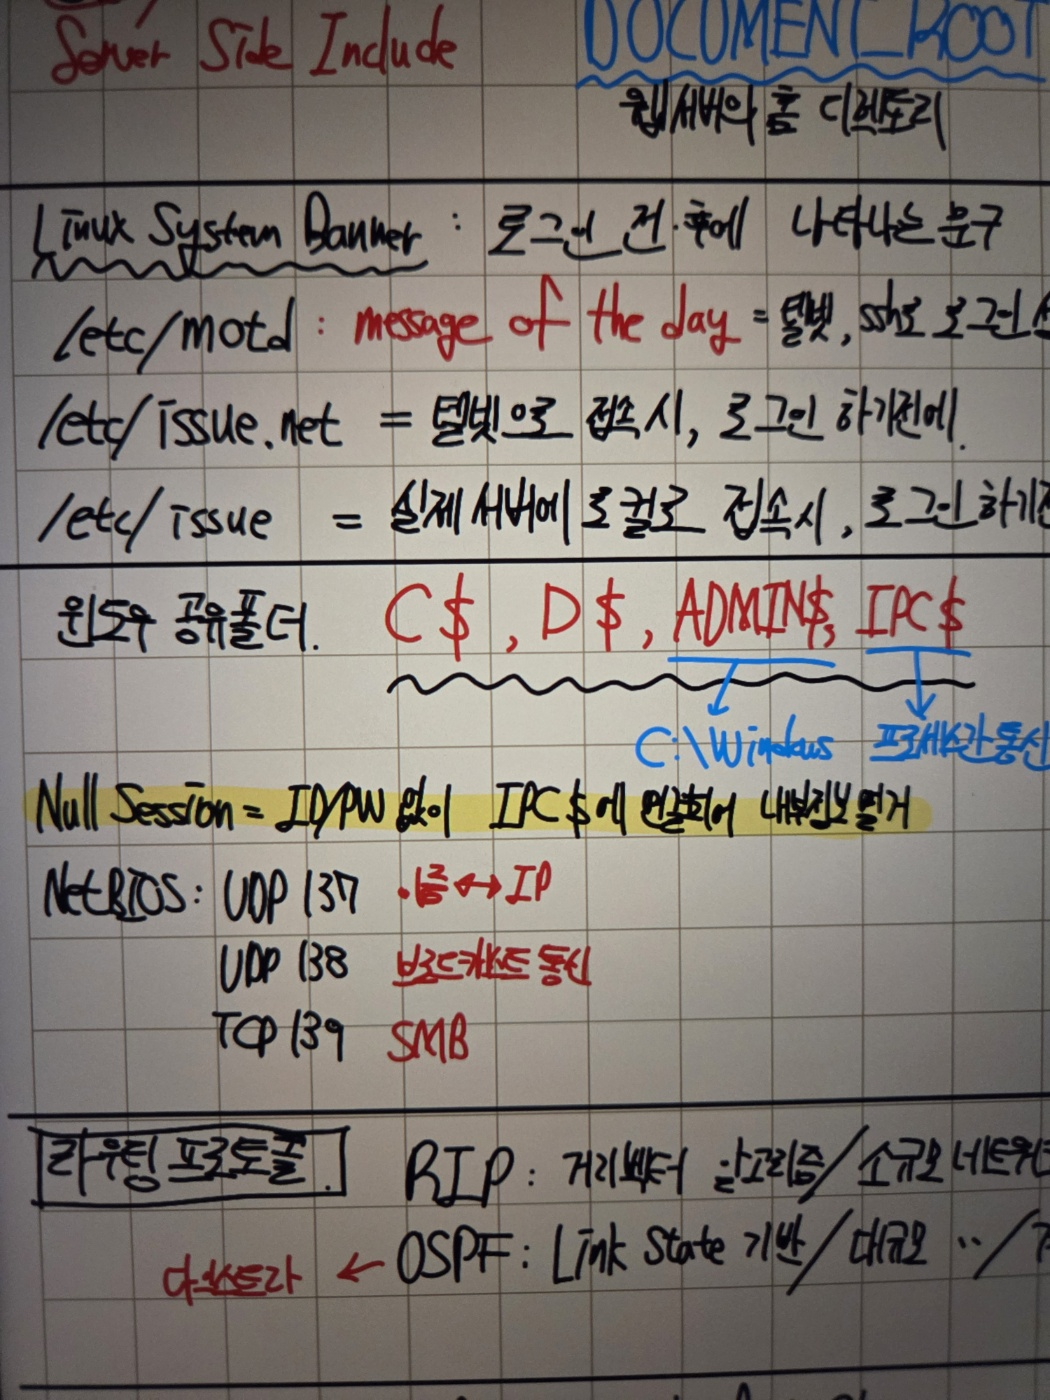 Server Side Include DOCUMENT_ROOT
웹서버의 홈 디렉토리
Linux System Banner : 로그인 전·후에 나타나는 문구
/etc/motd : message of the day = 텔넷, ssh로 로그인
/etc/issue.net = 텔넷으로 접속시, 로그인 하기전에.
/etc/issue = 실제 서버에 로컬로 접속시, 로그인 하기전
윈도우 공유폴더. C$, D$, ADMIN$, IPC$
C:\Windows 프로세스간 통신
Null Session = ID/PW 없이 IPC$에 연결되어 내부정보 열거
NetBIOS: UDP 137 이름 ↔ IP
UDP 138 브로드캐스트 통신
TCP 139 SMB
라우팅 프로토콜. RIP: 거리벡터 알고리즘/소규모 네트워크
다익스트라 ← OSPF: Link State 기반/대규모 ··/